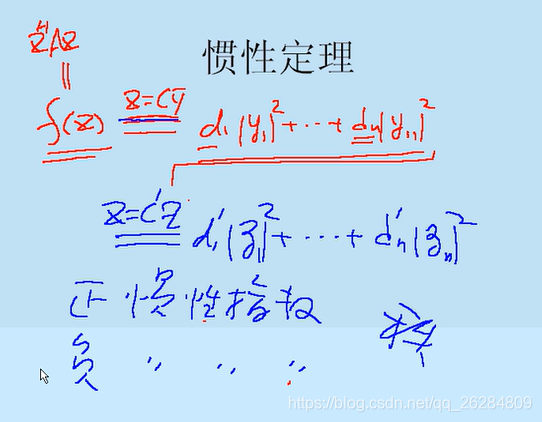 惯性定理
x^H A x
||
f(x) x=Cy d₁|y₁|²+⋯+dₙ|yₙ|²
x=C'z d'₁|z₁|²+⋯+d'ₙ|zₙ|²
正惯性指数
负 〃 〃 〃
https://blog.csdn.net/qq_26284809